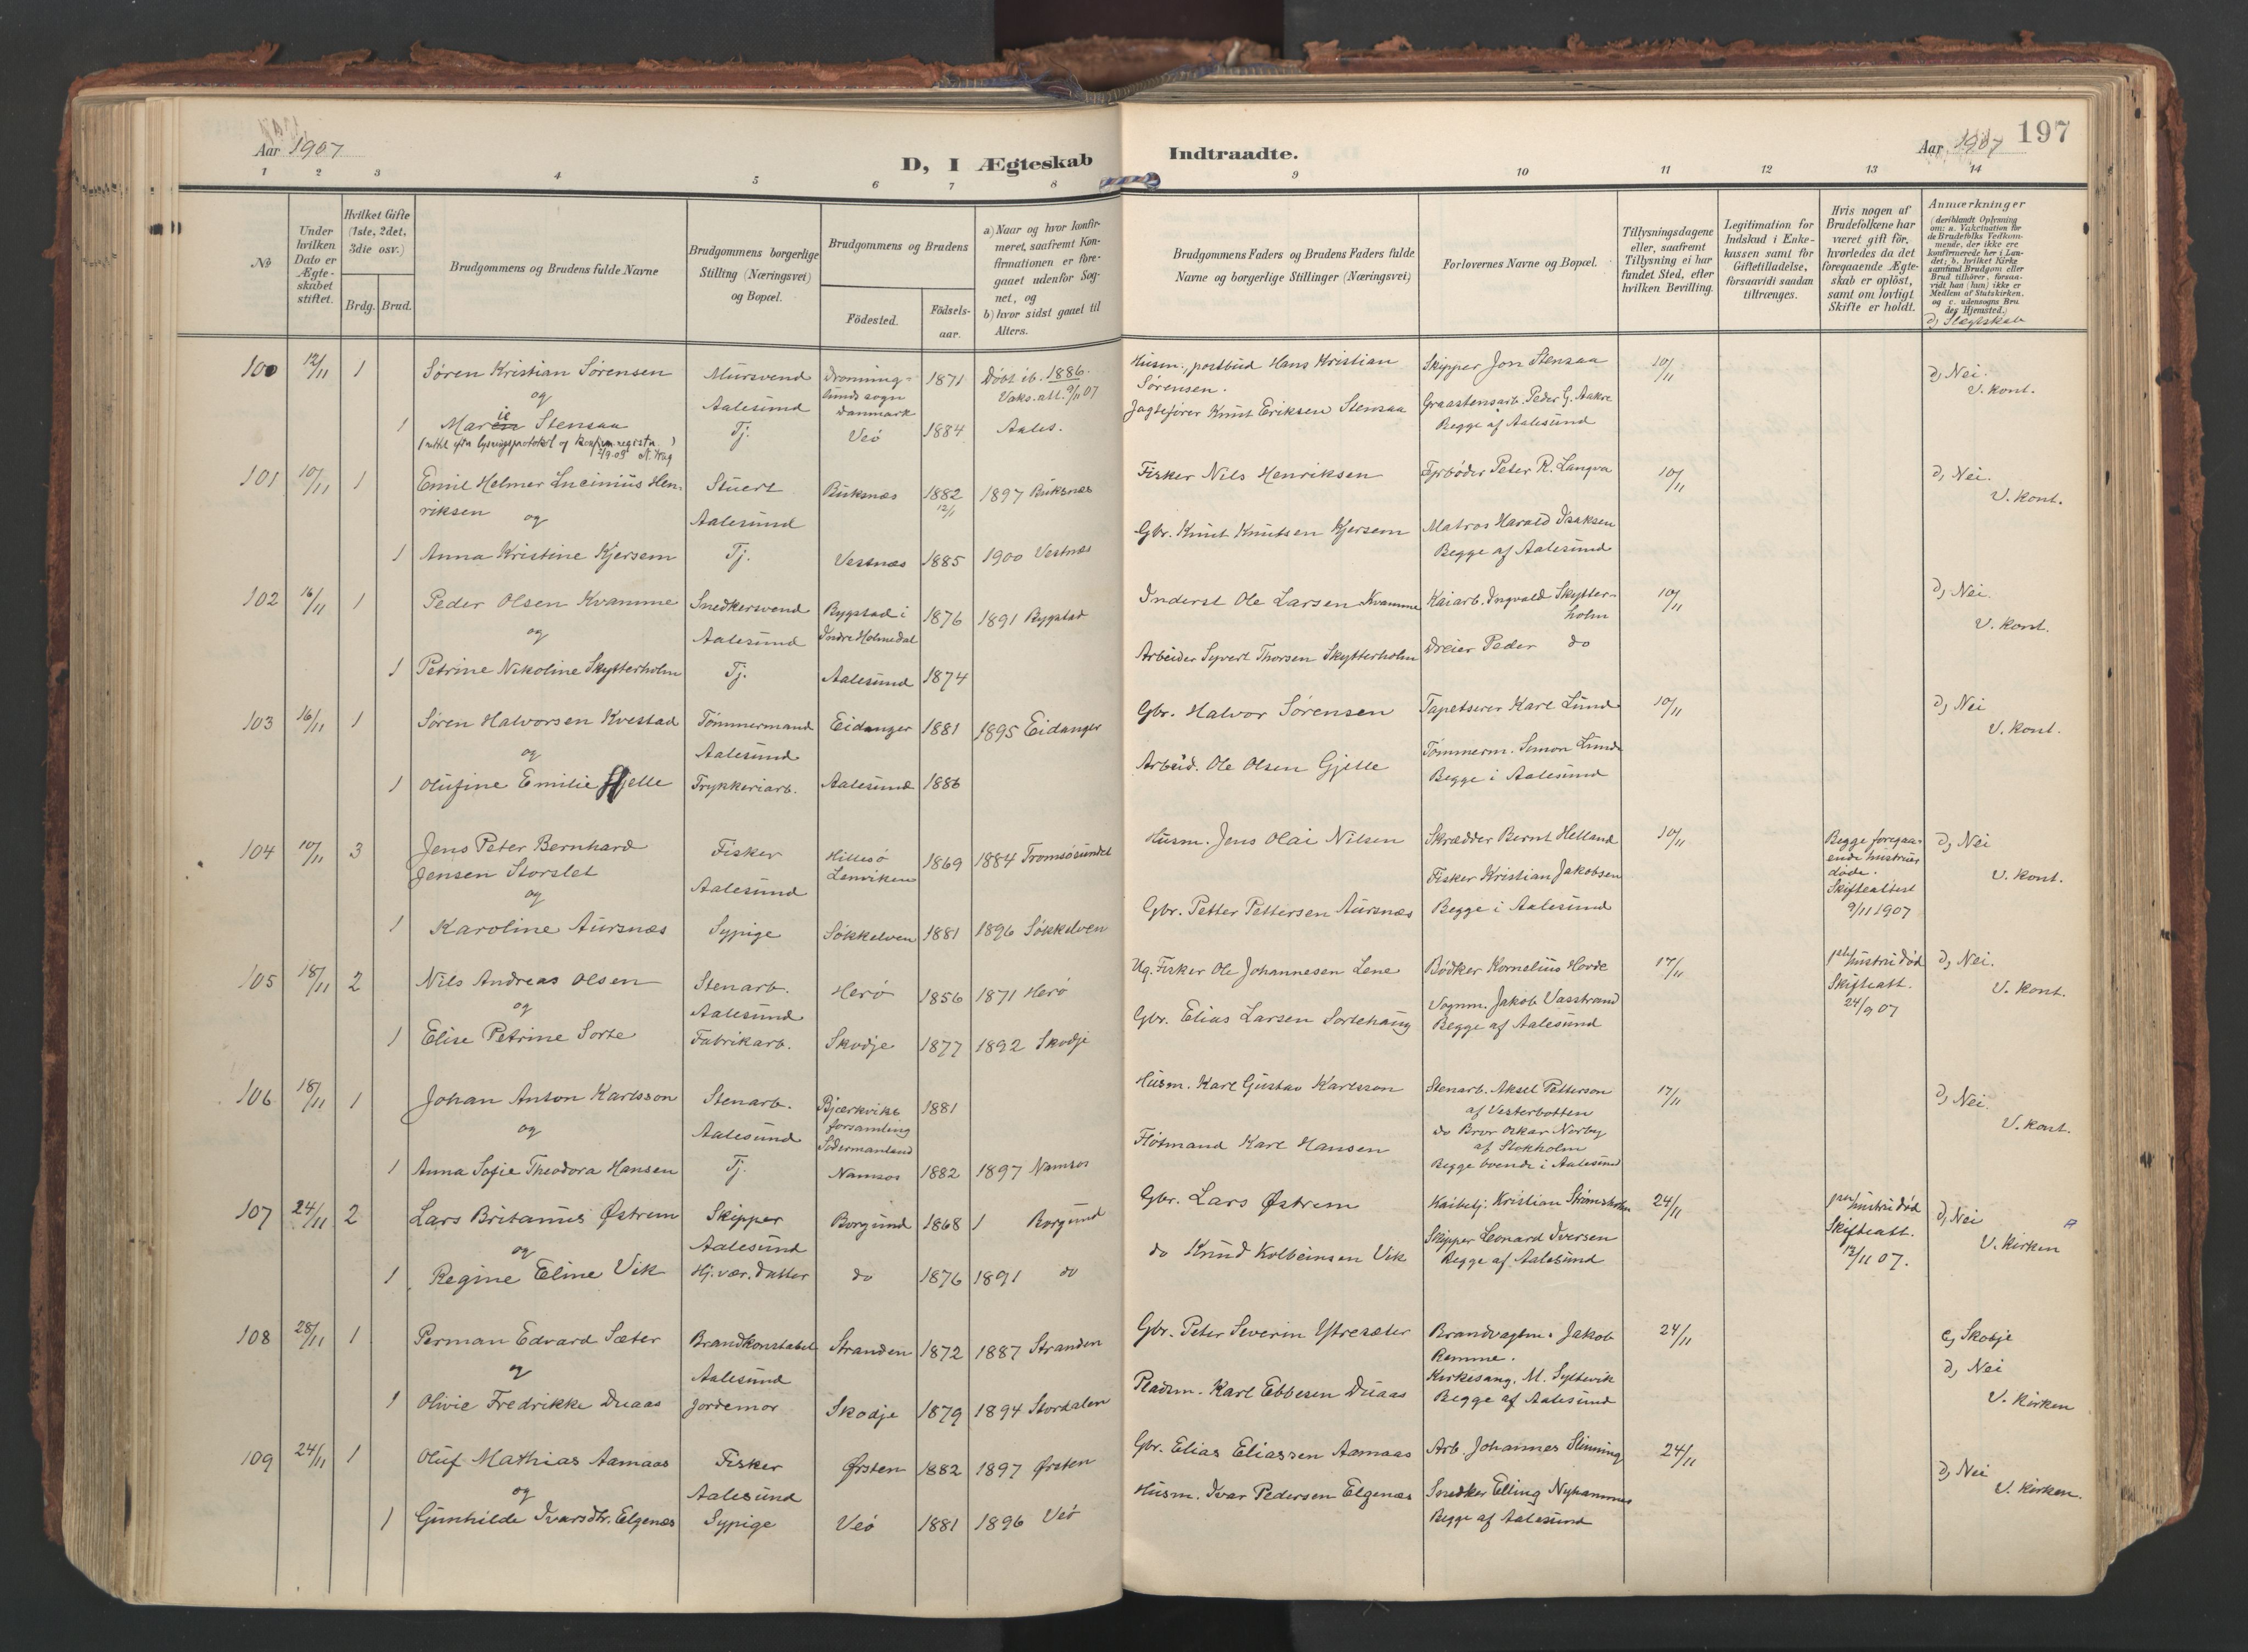 Aar 1907
D, I Ægteskab
Indtraadte.
Aar 1907
197
1 2 3 4 5 6 7 8 9 10 11 12 13 14
No
Under hvilken Dato er Ægteskabet stiftet.
Hvilket Gifte (1ste, 2det, 3die osv.)
Brdg. Brud.
Brudgommens og Brudens fulde Navne
Brudgommens borgerlige Stilling (Næringsvei) og Bopæl.
Brudgommens og Brudens
Födested.
Födsels-aar.
a) Naar og hvor konfir-
meret, saafremt Kon-
firmationen er fore-
gaaet udenfor Sog-
net, og
b) hvor sidst gaaet til
Alters.
Brudgommens Faders og Brudens Faders fulde
Navne og borgerlige Stillinger (Næringsvei)
Forlovernes Navne og Bopæl.
Tillysningsdagene
eller, saafremt
Tillysning ei har
fundet Sted, efter
hvilken Bevilling.
Legitimation for
Indskud i Enke-
kassen samt for
Giftetilladelse,
forsaavidt saadan
tiltrænges.
Hvis nogen af
Brudefolkene har
været gift för,
hvorledes da det
foregaaende Ægte-
skab er oplöst,
samt om lovligt
Skifte er holdt.
Anmærkninger
(deriblandt Oplysning
om: a. Vakcination for
de Brudefolks Vedkom-
mende, der ikke ere
konfirmerede her i Lan-
det; b. hvilket Kirke
samfund Brudgom eller
Brud tilhörer, forsaa-
vidt han (hun) ikke er
Medlem af Statskirken,
og c. udensogns Bru
des Hjemsted.)
d) Slægtskab
100 12/11 1 Søren Kristian Sørensen Mursvend Dronning- 1871 Døbt ib. 1886. Husm., postbud Hans Kristian Skipper Jon Stensaa 10/11 d, Nei.
og Aalesund lunds sogn Danmark Vaks.att. 9/11 07 Sørensen. Graastensarb. Peder G. Aakre V. kont.
1 Maren ie Stensaa Tj. Veö 1884 Aales. Jagtefører Knut Eriksen Stensaa Begge af Aalesund
(rettet efter lysningsprotokol og konfirm.register
101 10/11 1 Emil Helmer Lucinius Hen- Stuert Buksnæs 1882 1897 Buksnæs Fisker Nils Henriksen Fyrbøder Peter R. Langva 10/11 d, Nei.
riksen og Aalesund 12/1 Matros Harald Isaksen V. kont.
1 Anna Kristine Kjersem Tj. Vestnæs 1885 1900 Vestnæs Gbr. Knut Knutsen Kjersem Begge af Aalesund
102 16/11 1 Peder Olsen Kvamme Snedkersvend Bygstad i 1876 1891 Bygstad Inderst Ole Larsen Kvamme Kaiarb. Ingvald Skytter- 10/11 d, Nei.
og Aalesund Indre Holmedal holm V. kont.
1 Petrine Nikoline Skytterholm Tj. Aalesund 1874 Arbeider Syvert Thorsen Skytterholm Dreier Peder do
103 16/11 1 Søren Halvorsen Kvestad Tømmermand Eidanger 1881 1895 Eidanger Gbr. Halvor Sørensen Tapetserer Karl Lund 10/11 d, Nei
og Aalesund Tømmerm. Simon Lunde V. kont.
1 Olufine Emilie Gjelle Trykkeriarb. Aalesund 1886 Arbeid. Ole Olsen Gjelle Begge i Aalesund
104 10/11 3 Jens Peter Bernhard Fisker Hillesö 1869 1884 Tromsøsundet Husm. Jens Olai Nilsen Skrædder Bernt Helland 10/11 Begge foregaa- d, Nei
Jensen Storslet Aalesund Lenviken Fisker Kristian Jakobsen ende hustruer døde. V. kont.
og Skifteattest
1 Karoline Aursnæs Sypige Søkkelven 1881 1896 Søkkelven Gbr. Petter Pettersen Aursnæs Begge i Aalesund 9/11 1907
105 18/11 2 Nils Andreas Olsen Stenarb. Herö 1856 1871 Herö Ug. Fisker Ole Johannesen Lene Bødker Kornelius Horde 17/11 1ste hustru død d, Nei.
og Aalesund Vognm. Jakob Vasstrand Skifteatt. V. kont.
1 Elise Petrine Sorte Fabrikarb. Skodje 1877 1892 Skodje Gbr. Elias Larsen Sortehaug Begge af Aalesund 24/9 07
106 18/11 1 Johan Anton Karlsson Stenarb. Bjærkviks 1881 Husm. Karl Gustav Karlsson Stenarb. Aksel Petterson 17/11 d, Nei.
og Aalesund forsamling af Vesterbotten V. kont.
Södermanland do Bror Oskar Norby
af Stokholm
1 Anna Sofie Theodora Hansen Tj. Namsos 1882 1897 Namsos Fløtmand Karl Hansen Begge boende i Aalesund
107 24/11 2 Lars Britanus Østrem Skipper Borgund 1868 1 Borgund Gbr. Lars Østrem Kaibetj. Kristian Strømsholm 24/11 hustru død d, Nei
og Aalesund Skipper Leonard Iversen Skifteatt. V. Kirken
1 Regine Eline Vik Hj.vær. Datter do 1876 1891 do do Knud Kolbeinsen Vik Begge af Aalesund 12/11 07.
108 28/11 1 Perman Edvard Sæter Brandkonstabel Stranden 1872 1887 Stranden Gbr. Peter Severin Ytresæter Brandvagtm. Jakob 24/11 c, Skodje
og Aalesund Remme. d, Nei
Kirkesang. M. Syltevik
1 Olivie Fredrikke Duaas Jordemor Skodje 1879 1894 Stordalen Pladsm. Karl Ebbesen Duaas Begge af Aalesund V. Kirken
109 24/11 1 Oluf Mathias Aamaas Fisker Ørsten 1882 1897 Ørsten Gbr. Elias Eliassen Aamaas Arb. Johannes Slinning 24/11 d, Nei
og Aalesund Snedker Elling Nyhammer V. Kirken.
1 Gunhilde Ivarsdtr. Elgenæs Sypige Veö 1881 1896 Veö Husm. Ivar Pedersen Elgenæs Begge af Aalesund